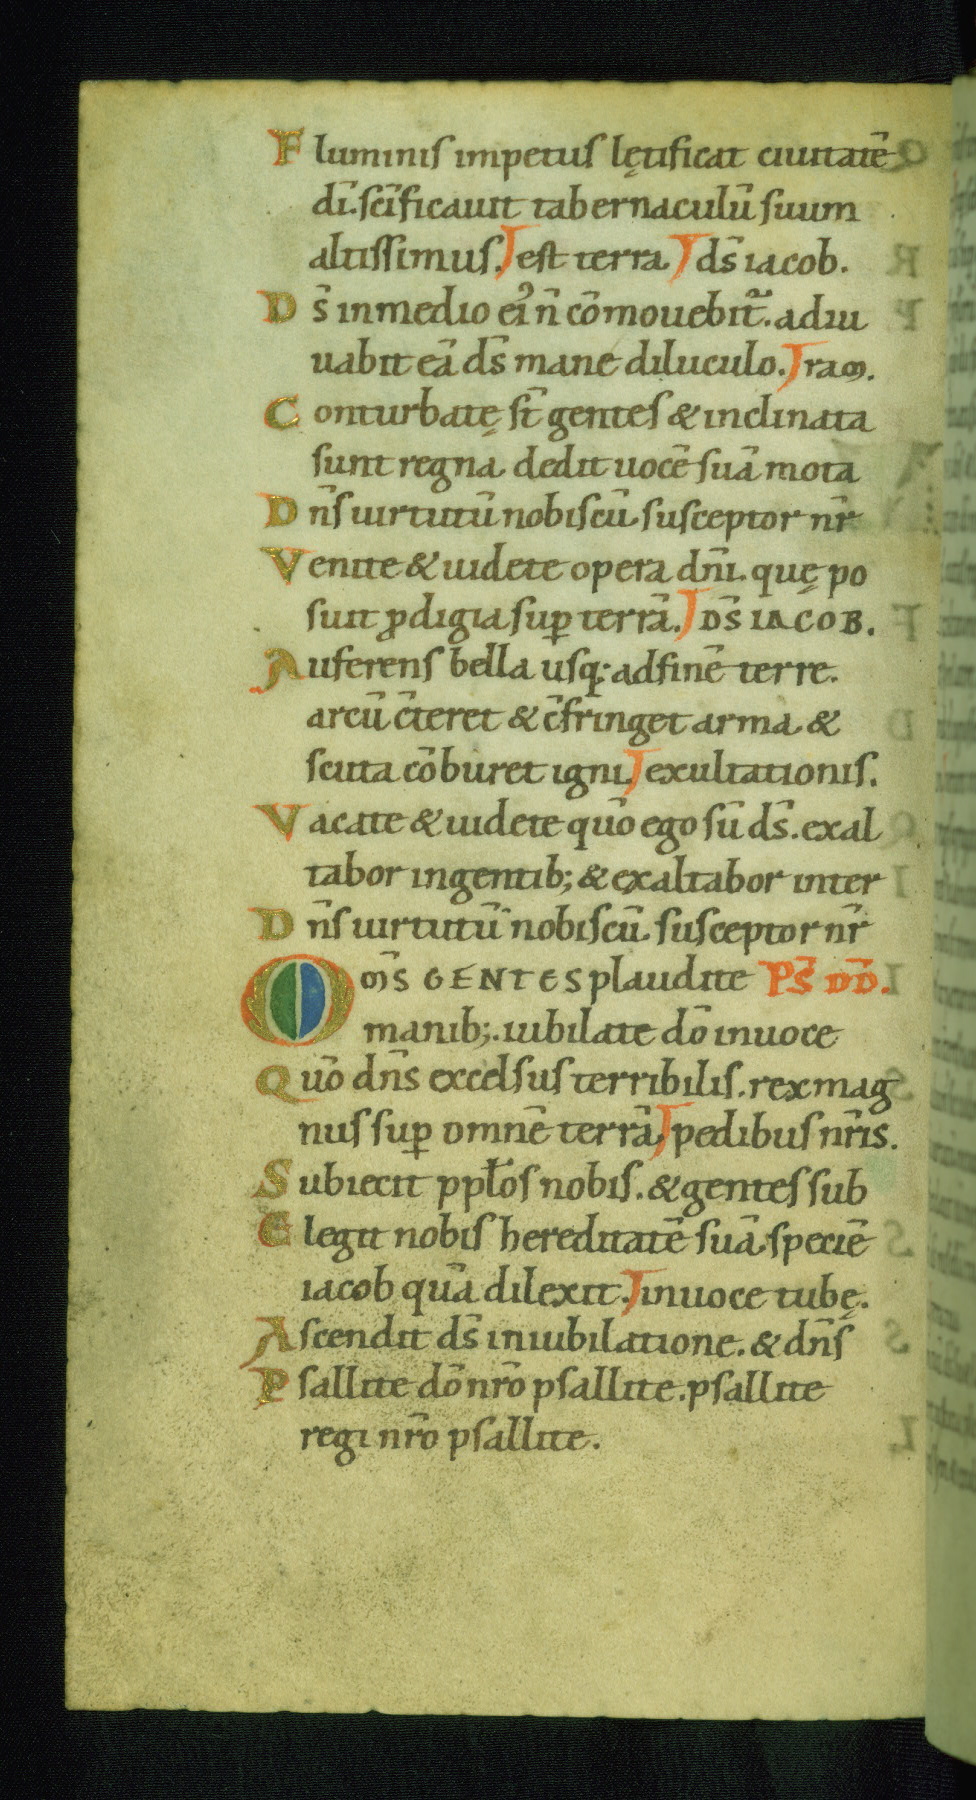 Fluminis impetus lętificat ciuitatē
dī. scīficauit tabernaculū suum
altissimus. est terra. ds̄ iacob.
Ds̄ in medio ei᾿ n̄ cōmouebit᷒. adiu
uabit eā ds̄ mane diluculo. ram.
Conturbatę st̄ gentes & inclinata
sunt regna dedit uocē suā mota
Dn̄s uirtutū nobiscū susceptor nr̄
Venite & uidete opera dn̄i. quę po
suit ꝓdigia suꝑ terrā. DS̄ IACOB.
Auferens bella usq; ad finē terre.
arcū c̄teret & c̄fringet arma &
scuta cōburet igni. exultationis.
Vacate & uidete quō ego sū ds̄. exal
tabor in gentib; & exaltabor inter
Dn̄s uirtutū nobiscū susceptor nr̄
OMS̄ GENTES plaudite PS̄ DD̄.
manib;. iubilate dō in uoce
Quō dn̄s excelsus terribilis. rex mag
nus suꝑ omnē terrā pedibus nr̄is.
Subiecit pplo̅s nobis. & gentes sub
Elegit nobis hereditatē suā speciē
iacob quā dilexit. in uoce tubę.
Ascendit ds̄ in iubilatione. & dn̄s
Psallite dō nr̄o psallite. psallite
regi nr̄o psallite.